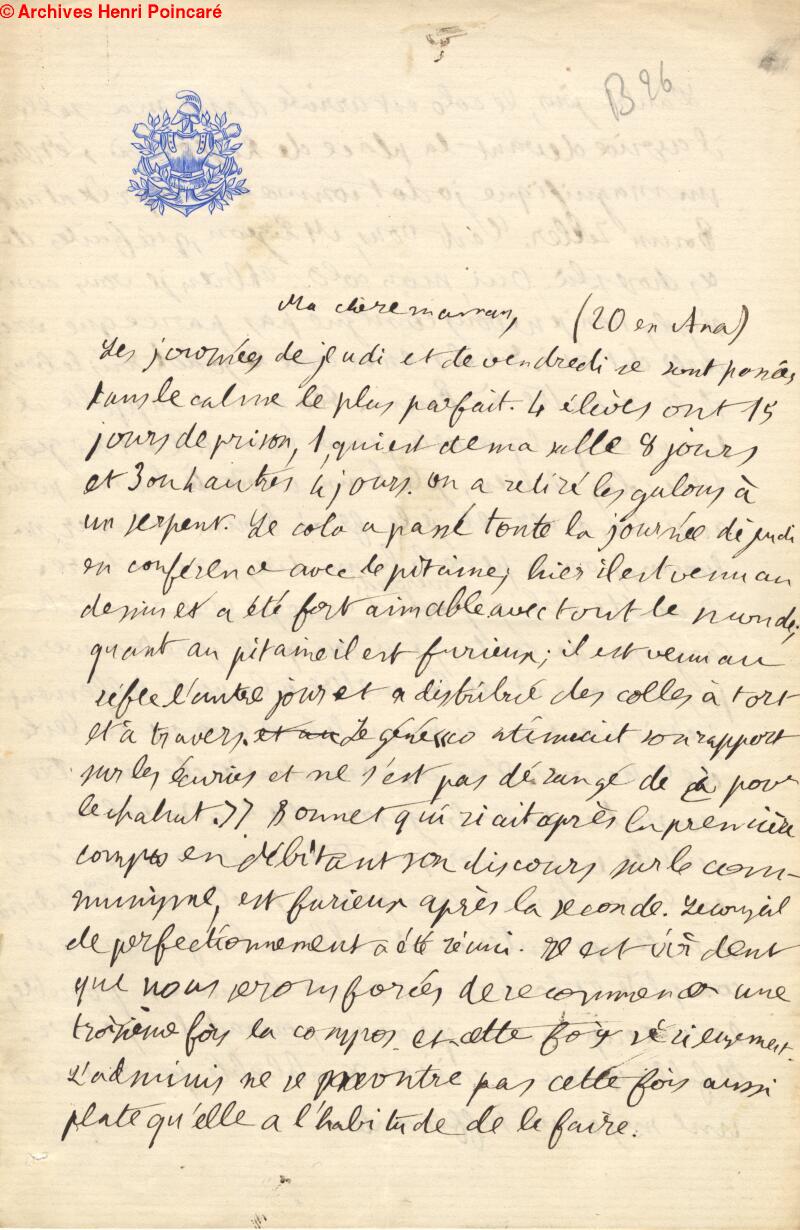 © Archives Henri Poincaré
B 96
Ma chère maman, (20 en Ana)
Les journées de jeudi et de vendredi se sont passées
dans le calme le plus parfait. 4 élèves ont 15
jours de prison, 1, qui est de ma salle 8 jours
et 3 ont autres 4 jours. On a retiré les galons à
un serpent. Le colo a passé toute la journée de jeudi
en conférence avec le pitaine; hier il est venu au
dessin et a été fort aimable avec tout le monde;
quant au pitaine il est furieux; il est venu au
réfec l'autre jour et a distribué des colles à tort
et à travers. et au Le géné co terminait son rapport
sur les écuries et ne s'est pas dérangé de là pour
le chahut. 77 Bonnet qui riait après la première
compos en débitant son discours sur le com-
munisme, est furieux après la seconde. Le conseil
de perfectionnement a été réuni. Il est évident
que nous serons forcés de recommencer une
troisième fois la compos. et cette fois sérieusement.
L'adminis ne se montre pas cette fois aussi
plate qu'elle a l'habitude de le faire.